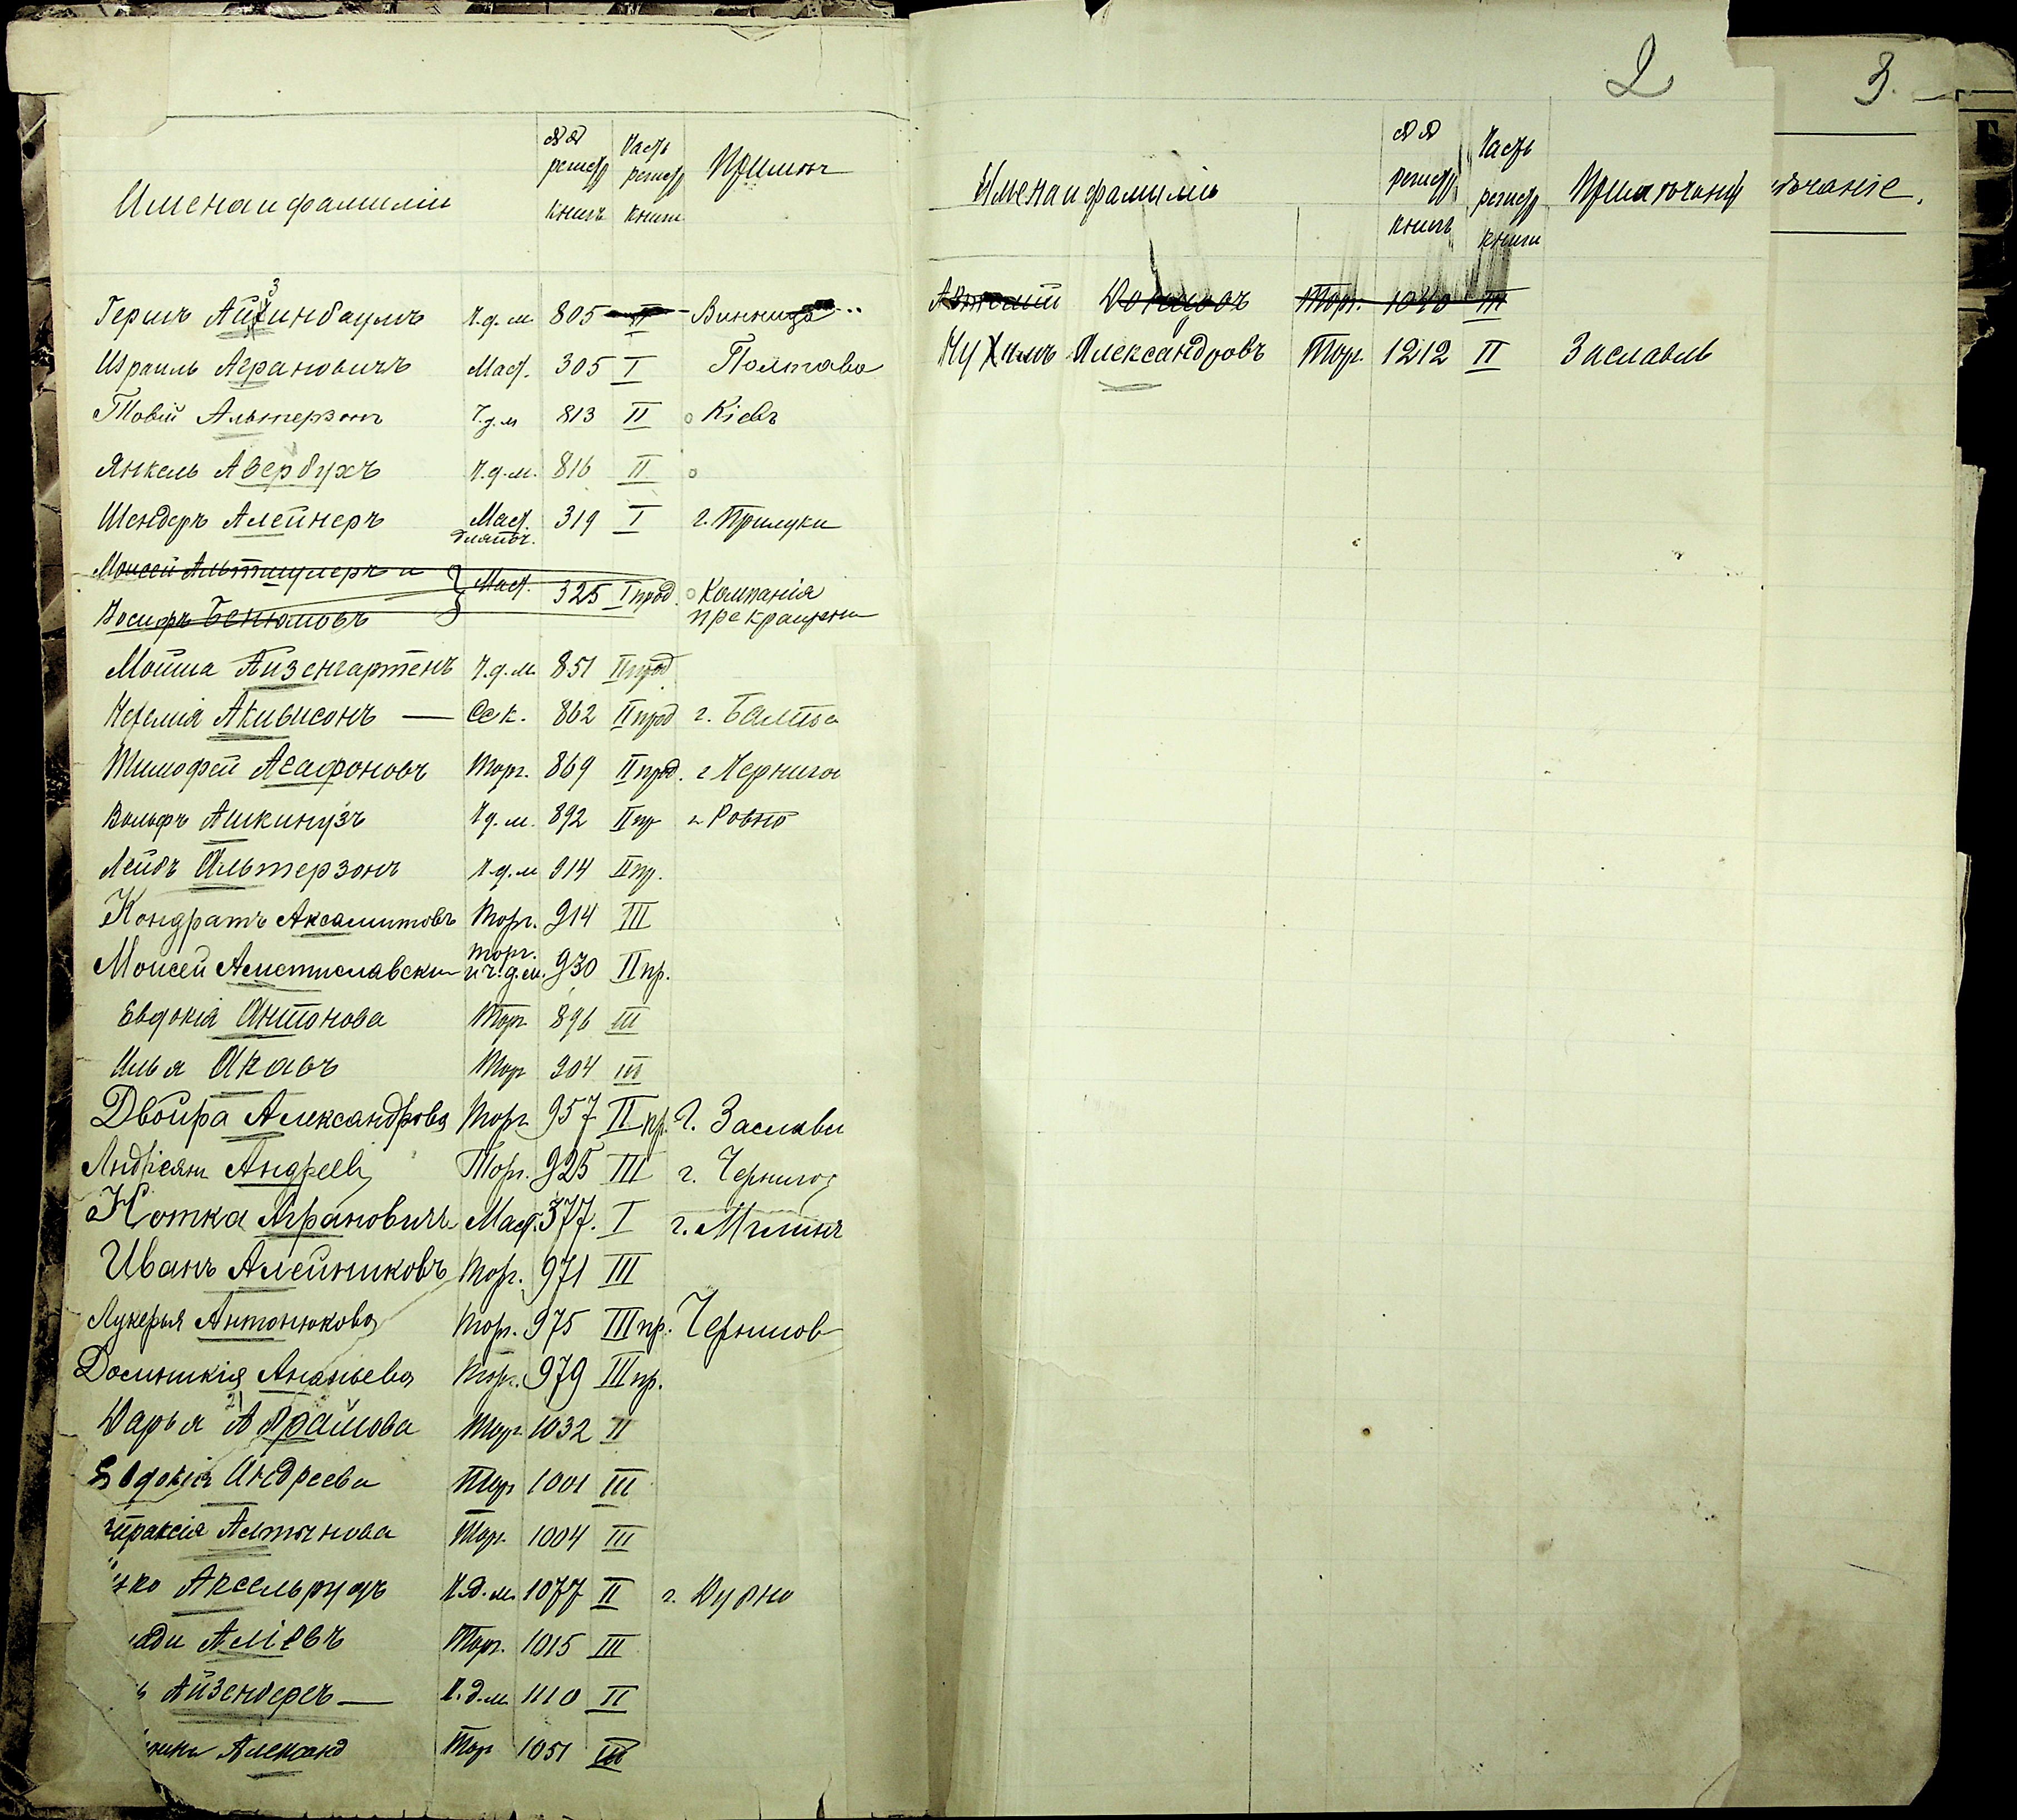 Имена и фамиліи
№№ регистр книгъ
Часть регистр книги
Примѣч
Гершъ Айзинбаумъ Ч.д.м. 805 II Винница
Израиль Аграновичъ Маст. 305 I Полтава
Товій Альтерзонъ Ч.д.м 813 II Кіевъ
Янкель Авербухъ Ч.д.м. 816 II
Шендеръ Алейнеръ Маст. 319 I г. Прилуки
Моисей Альтшулеръ и
Іосифъ Беніамовъ Маст. 325 I прод. Компанія прекращена
Мойша Айзенгартенъ Ч.д.м. 851 II прод
Нехемія Акивисонъ — Сек. 862 II прод г. Балта
Тимофей Агафоновъ Торг. 869 II прод. г Чернигов
Вольфъ Ашкинузъ Ч.д.м. 892 II пр г. Ровно
Лейбъ Альтерзонъ Ч.д.м 914 II пр.
Кондратъ Аксамитовъ Торг. 914 III
Моисей Амстиславски торг. и ч.д.м. 930 II пр.
Евдокія Антонова Торг 896 III
Илья Акавъ Торг 904 III
Двойра Александрова Торг 957 II пр. г. Заславл
Андріянъ Андреев Торг. 925 III г. Чернигов
Нотка Аграновичъ Маст. 377. I г. Мглинъ
Иванъ Алейниковъ Торг. 971 III
Лукерья Антонюкова Торг. 975 III пр. Чернигов
Ананьева Торг. 979 III пр.
Дарья Абрамова Торг 1032 II
Евдокія Андреева Торг 1001 III
праксія Антонова Торг. 1004 III
ко Аксельрудъ Ч.д.м. 1077 II г. Дубно
ади Аліевъ Торг. 1015 III
ъ Айзенбергъ — Ч.д.м 1110 II
Александ Торг 1051 III
2
Имена и фамиліи
№№ регистр книгъ
Часть регистр книги
Примѣчаній
Торг. 1040 III
Нухимъ Александровъ Торг. 1212 II Заславль
3.
ѣчаніе.
Б